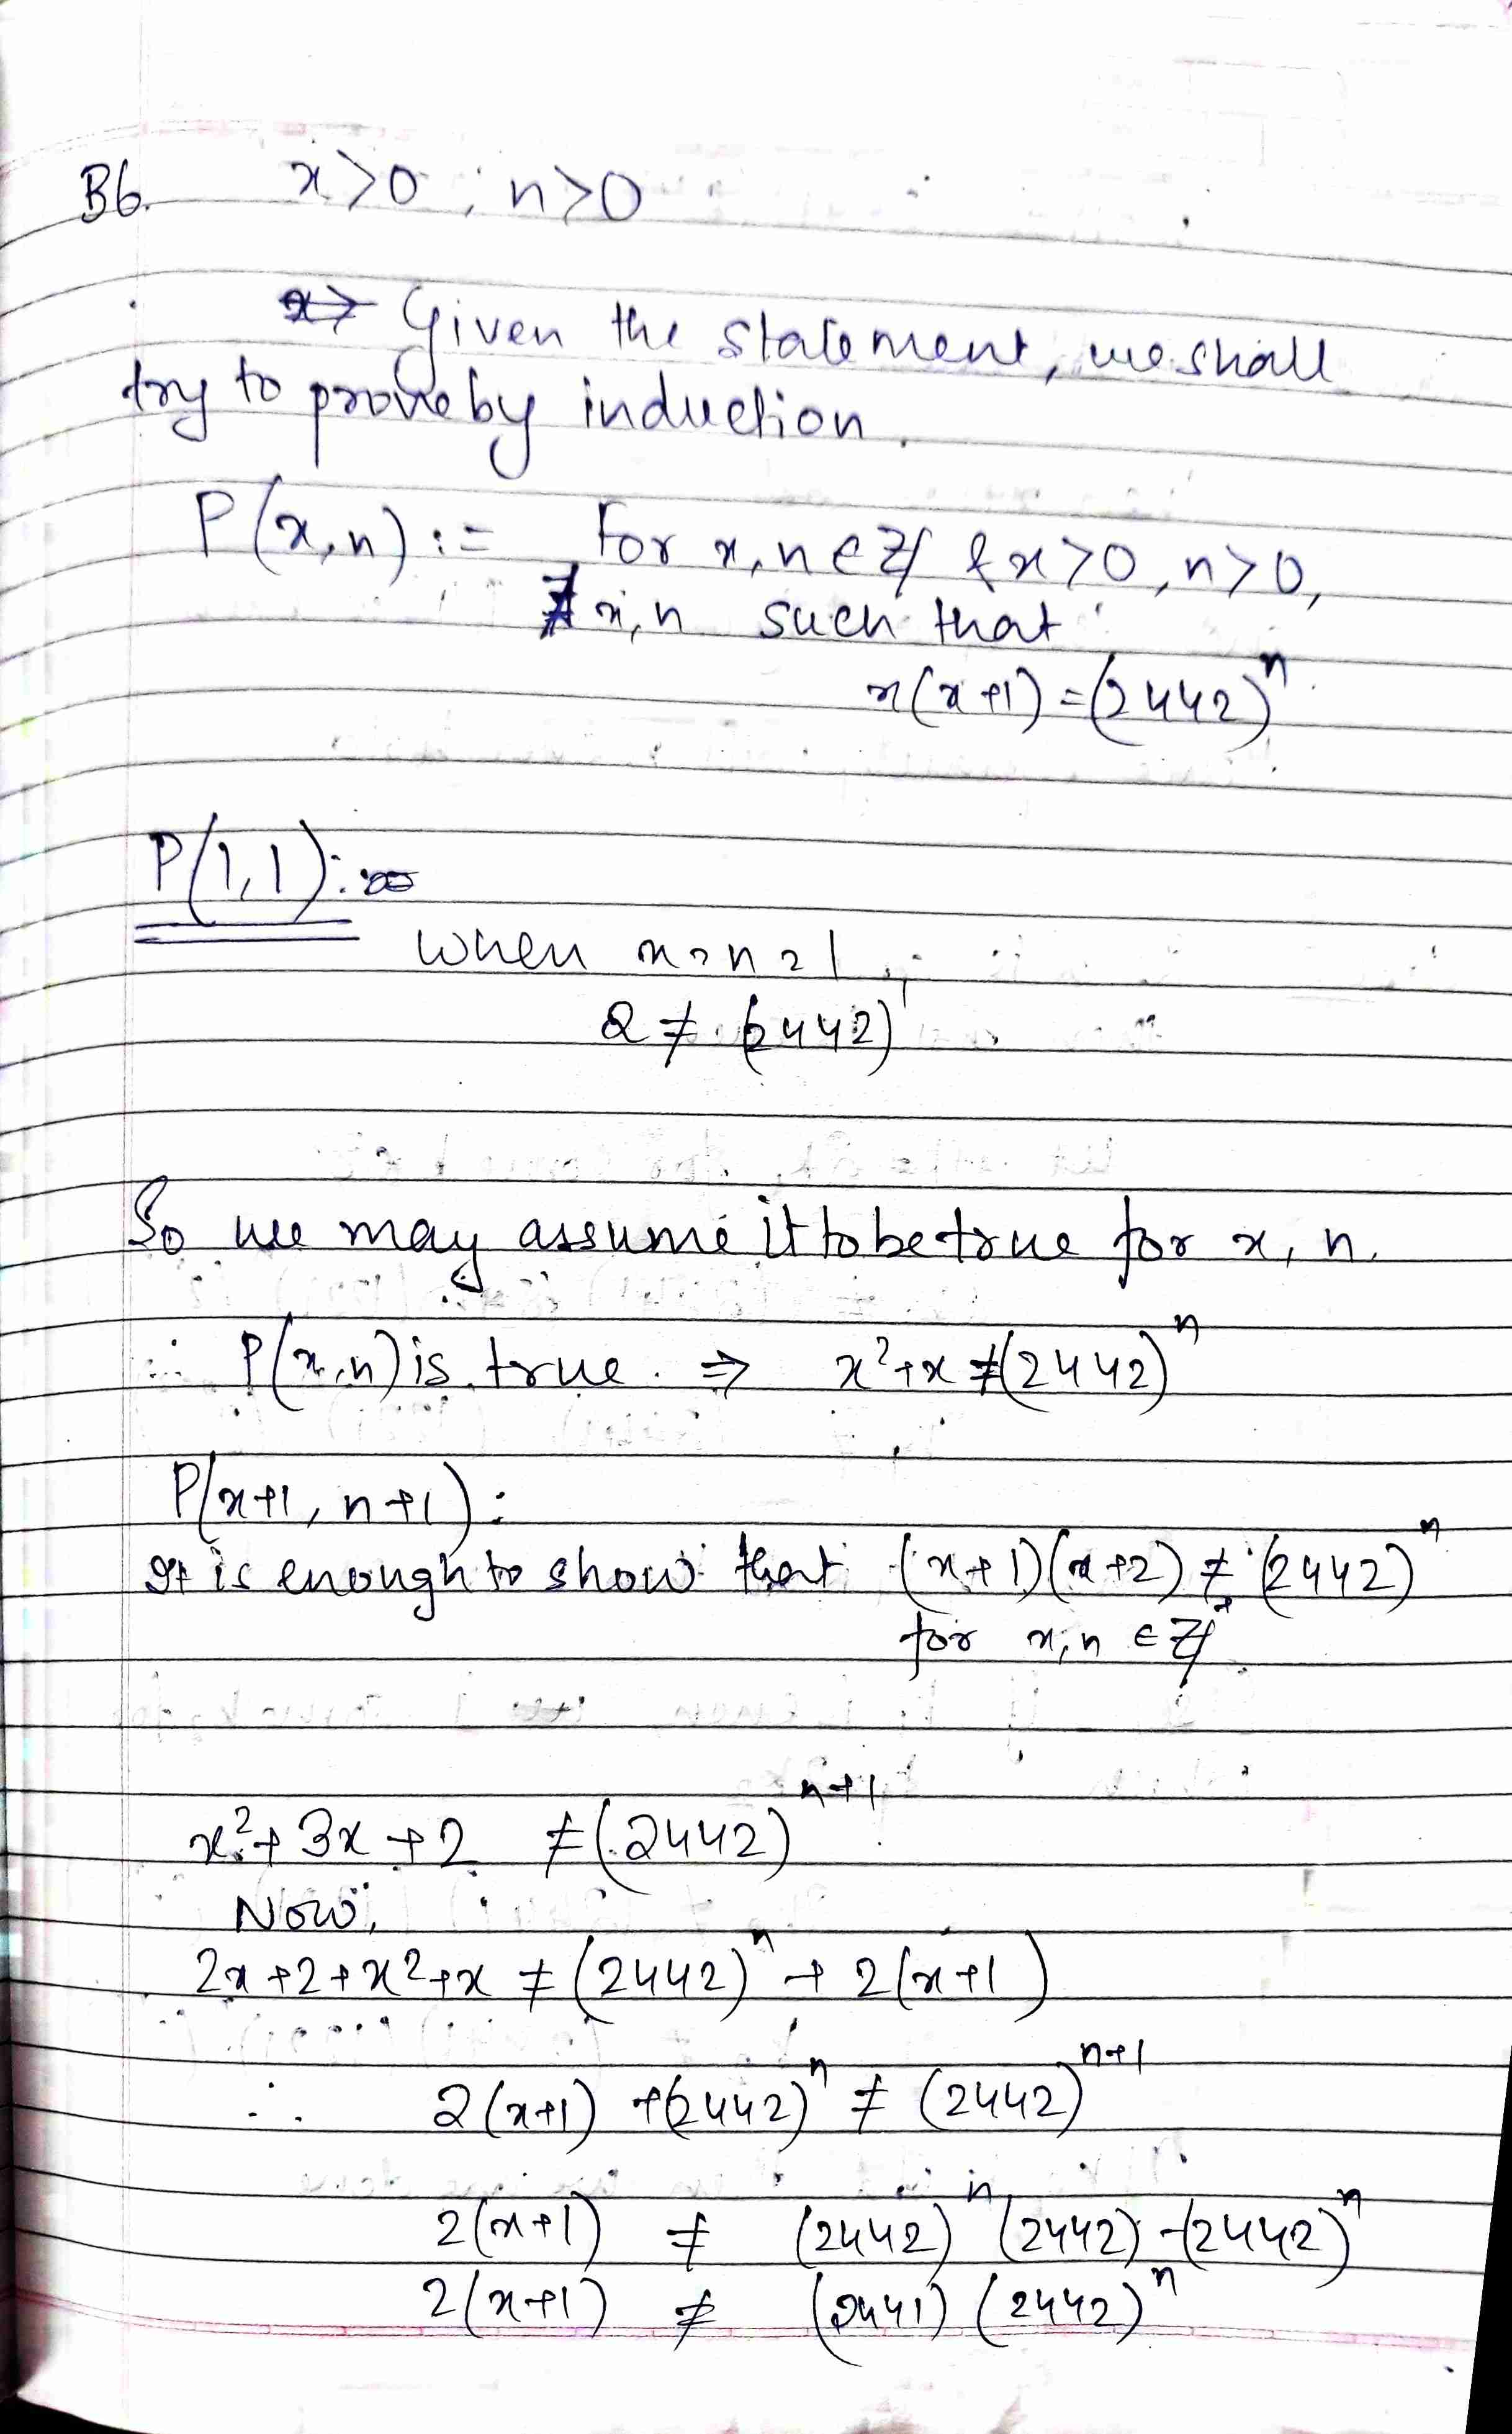 B6. x>0 ; n>0
Given the statement, we shall
try to prove by induction.
P(x,n) := For x,n ∈ ℤ & x>0, n>0,
∄ x,n such that
x(x+1) = (2442)^n
P(1,1):
When x=n=1,
2 ≠ (2442)^1
So we may assume it to be true for x, n.
∴ P(x,n) is true. ⇒ x²+x ≠ (2442)^n
P(x+1, n+1):
It is enough to show that (x+1)(x+2) ≠ (2442)^n
for x,n ∈ ℤ⁺
x²+3x+2 ≠ (2442)^{n+1}
Now,
2x+2+x²+x ≠ (2442)^n + 2(x+1)
∴ 2(x+1) + (2442)^n ≠ (2442)^{n+1}
2(x+1) ≠ (2442)^n (2442) - (2442)^n
2(x+1) ≠ (2441) (2442)^n